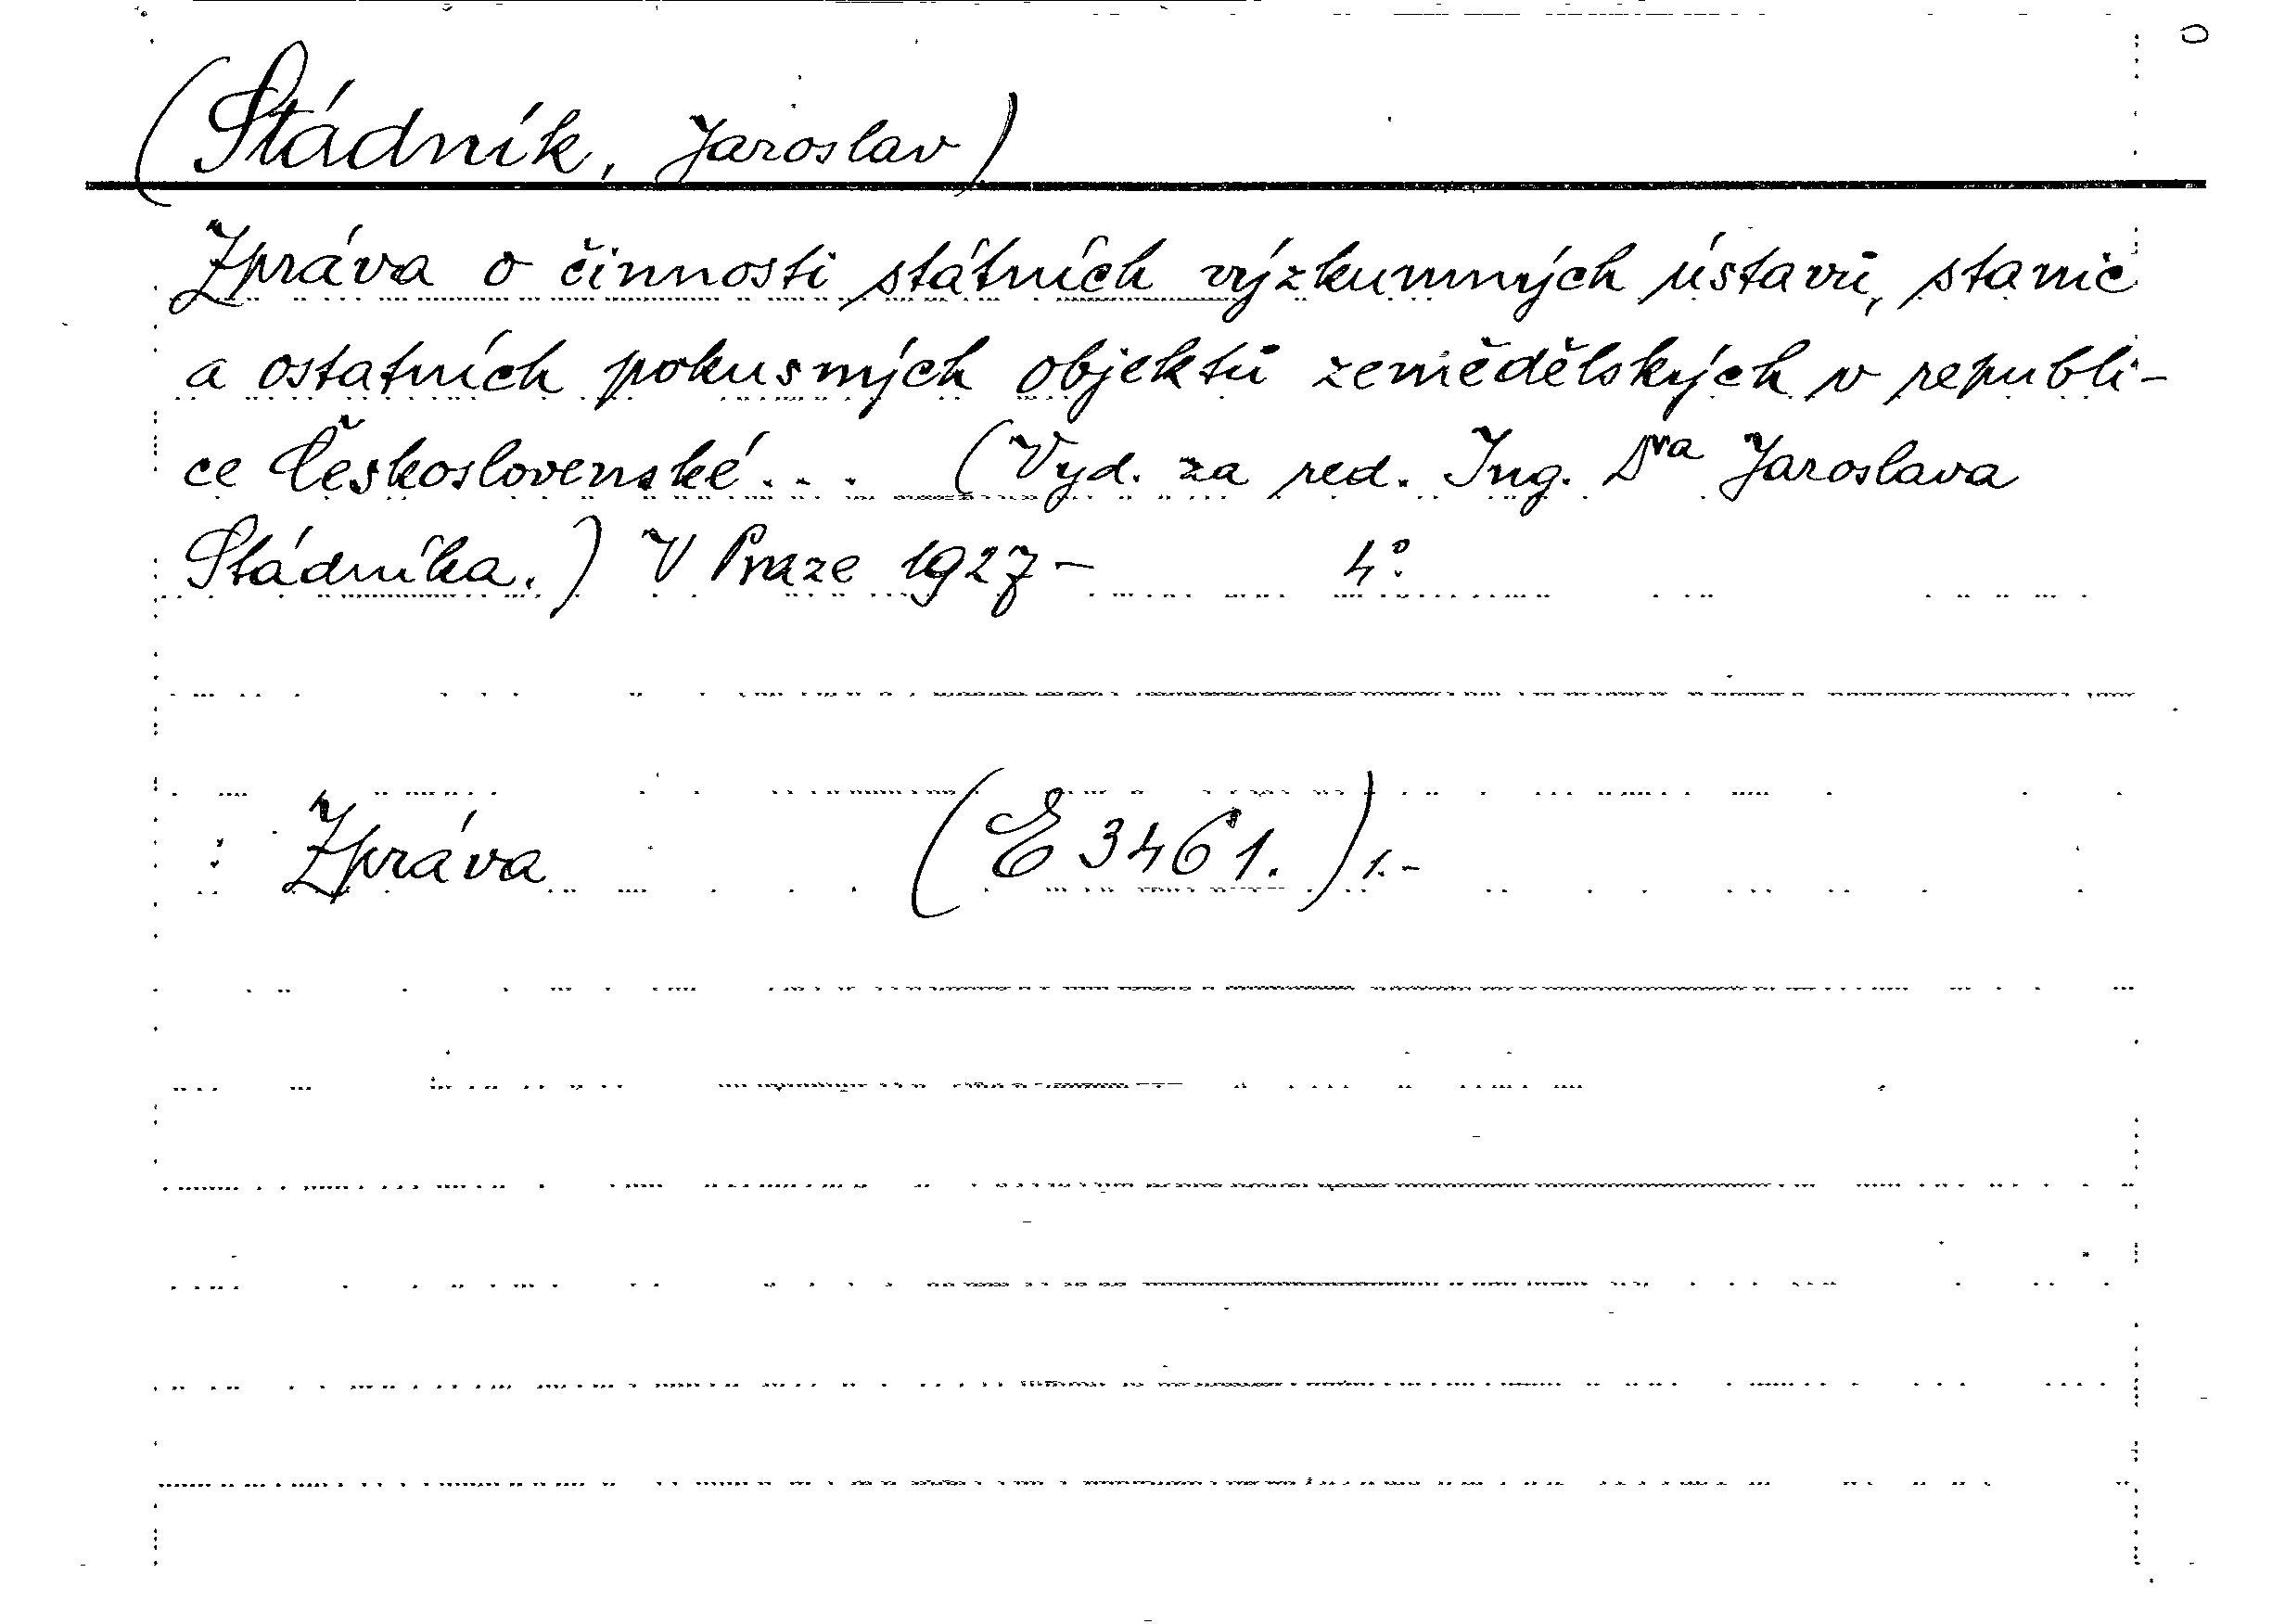 (Stádník, Jaroslav)
Zpráva o činnosti státních výzkumných ústavů, stanic
a ostatních pokusných objektů zemědělských v republi-
ce Československé... (Vyd. za red. Ing. Dra Jaroslava
Stádníka.) V Praze 1927- 4°.
Zpráva (E 3461.) 1.-